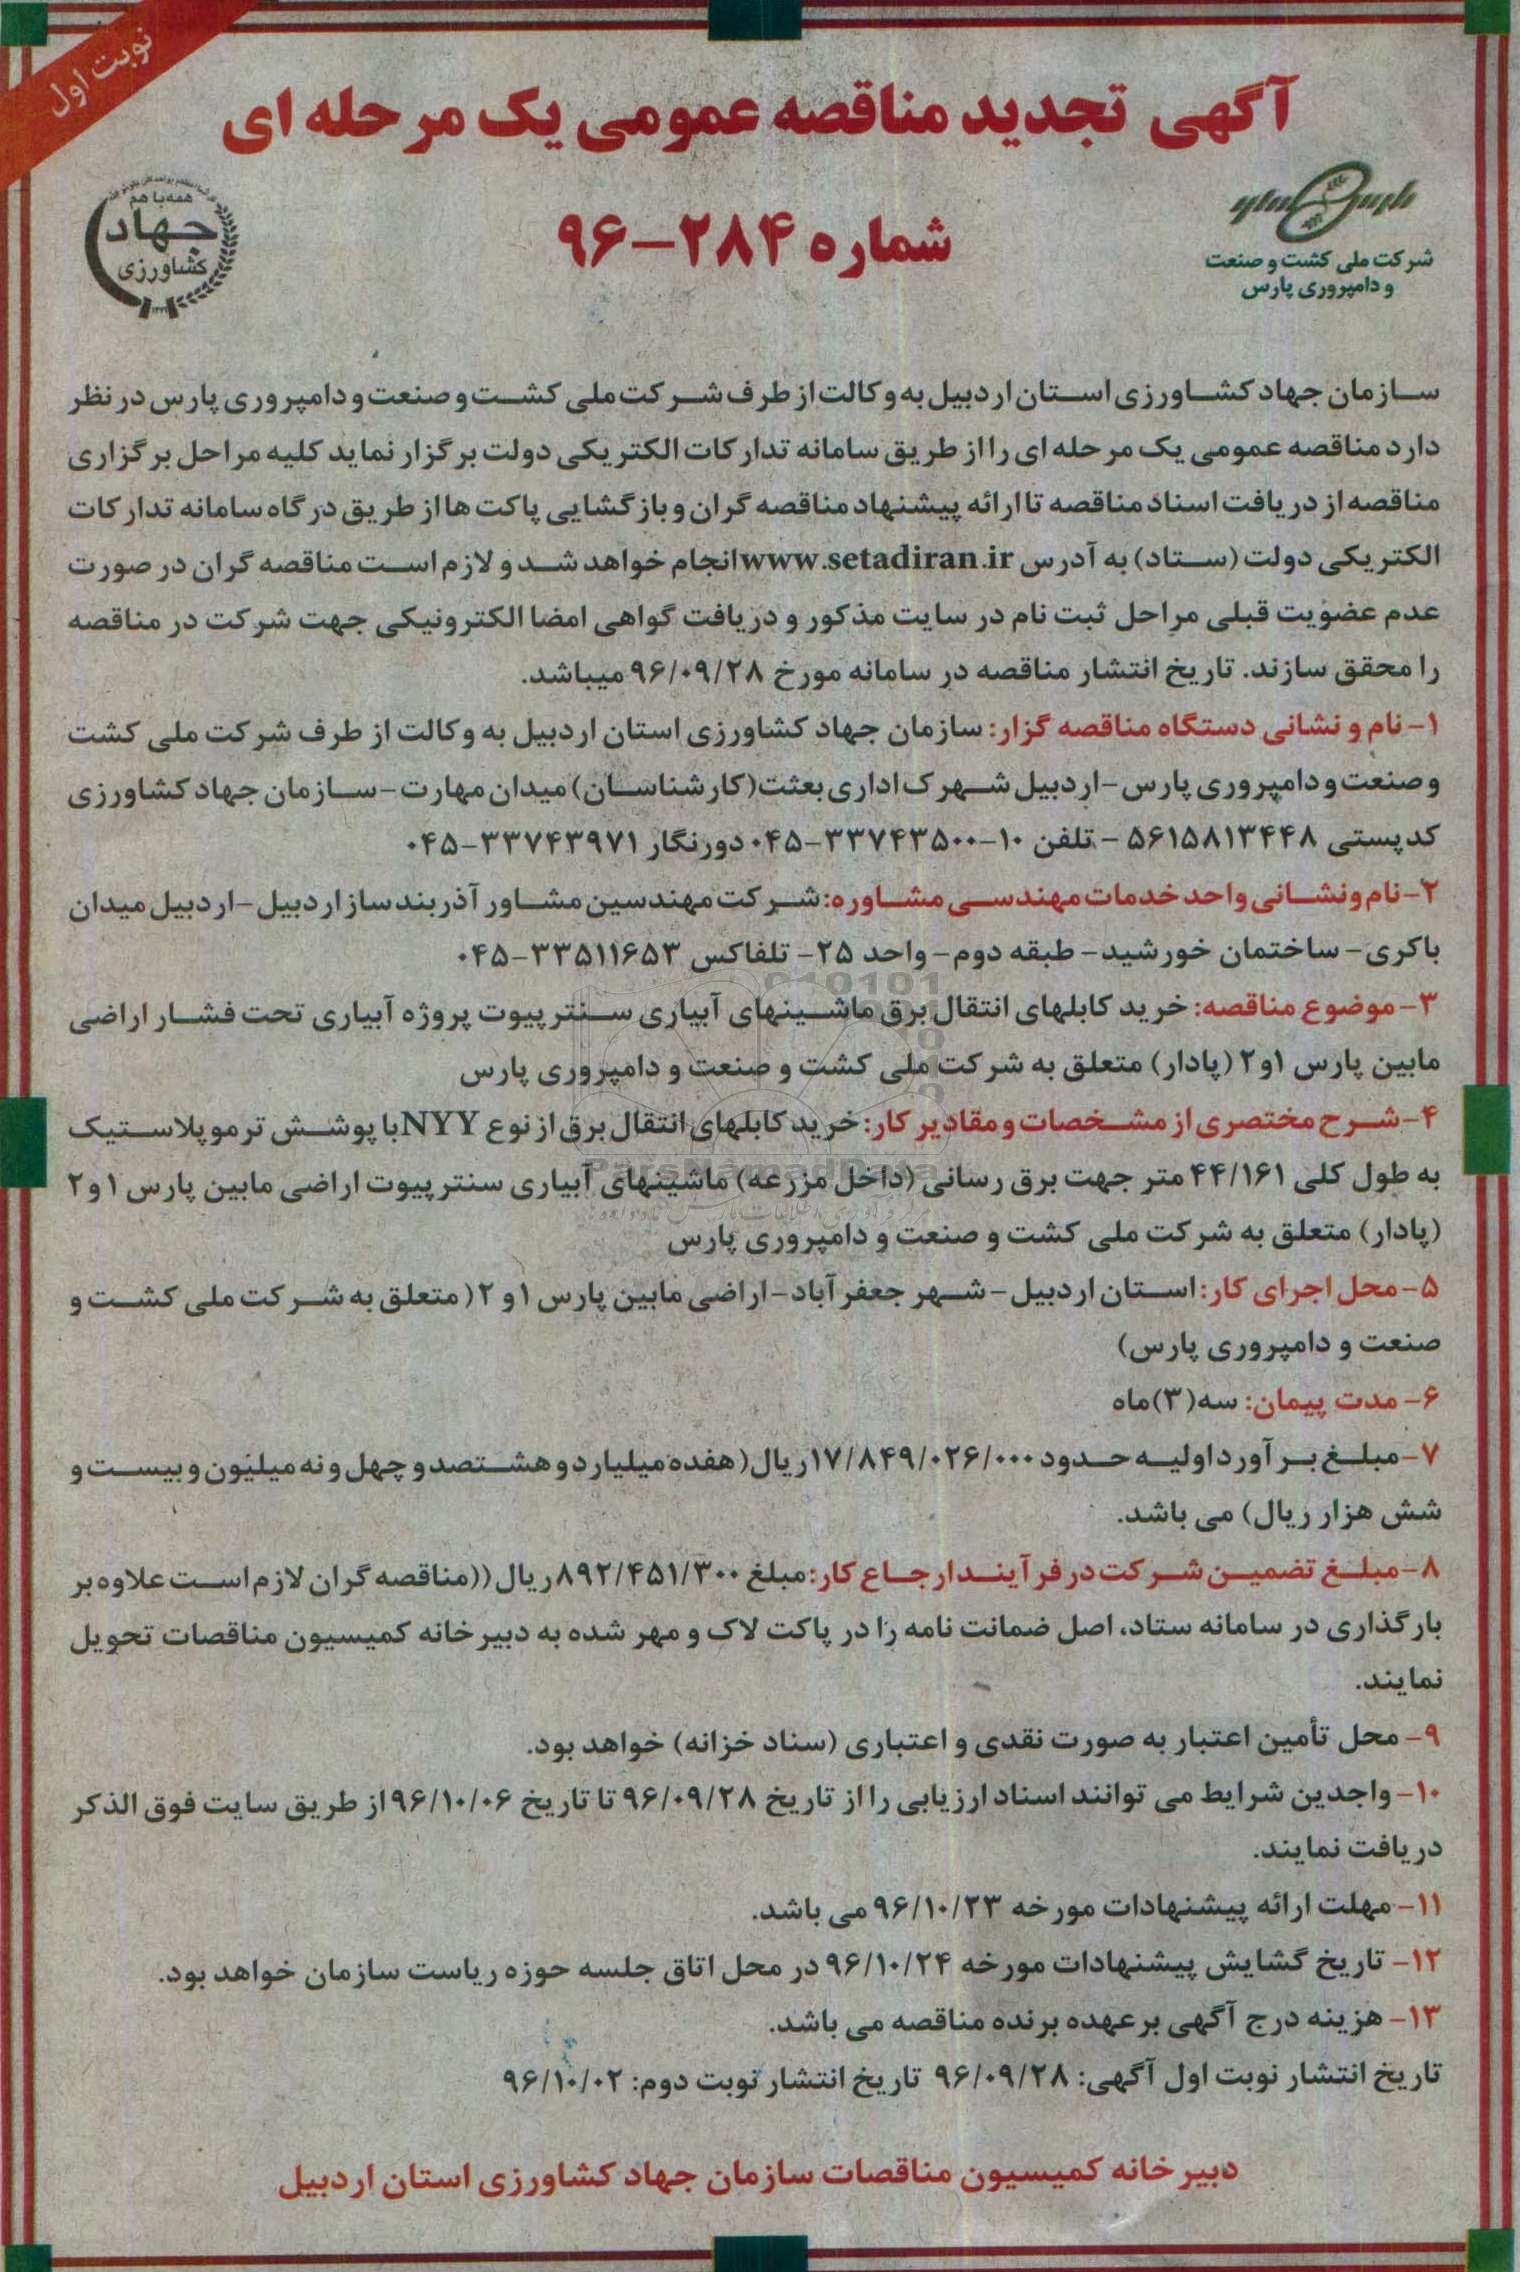 نوبت اول
آگهی تجدید مناقصه عمومی یک مرحله ای
شماره ۲۸۴-۹۶
شرکت ملی کشت و صنعت
و دامپروری پارس
همه با هم
جهاد
کشاورزی
سازمان جهاد کشاورزی استان اردبیل به وکالت از طرف شرکت ملی کشت و صنعت و دامپروری پارس در نظر
دارد مناقصه عمومی یک مرحله ای را از طریق سامانه تدارکات الکتریکی دولت برگزار نماید کلیه مراحل برگزاری
مناقصه از دریافت اسناد مناقصه تا ارائه پیشنهاد مناقصه گران و بازگشایی پاکت ها از طریق درگاه سامانه تدارکات
الکتریکی دولت (ستاد) به آدرس www.setadiran.ir انجام خواهد شد و لازم است مناقصه گران در صورت
عدم عضویت قبلی مراحل ثبت نام در سایت مذکور و دریافت گواهی امضا الکترونیکی جهت شرکت در مناقصه
را محقق سازند. تاریخ انتشار مناقصه در سامانه مورخ ۹۶/۰۹/۲۸ میباشد.
۱- نام و نشانی دستگاه مناقصه گزار: سازمان جهاد کشاورزی استان اردبیل به وکالت از طرف شرکت ملی کشت
و صنعت و دامپروری پارس -اردبیل شهرک اداری بعثت (کارشناسان) میدان مهارت - سازمان جهاد کشاورزی
کد پستی ۵۶۱۵۸۱۳۴۴۸ - تلفن ۱۰-۳۳۷۴۳۵۰۰-۰۴۵ دورنگار ۳۳۷۴۳۹۷۱-۰۴۵
۲- نام ونشانی واحد خدمات مهندسی مشاوره: شرکت مهندسین مشاور آذربندساز اردبیل -اردبیل میدان
باکری- ساختمان خورشید- طبقه دوم- واحد ۲۵- تلفاکس ۳۳۵۱۱۶۵۳-۰۴۵
۳- موضوع مناقصه: خرید کابلهای انتقال برق ماشینهای آبیاری سنتر پیوت پروژه آبیاری تحت فشار اراضی
مابین پارس ۱و۲ (پادار) متعلق به شرکت ملی کشت و صنعت و دامپروری پارس
۴- شرح مختصری از مشخصات و مقادیر کار: خرید کابلهای انتقال برق از نوع NYY با پوشش ترموپلاستیک
به طول کلی ۴۴/۱۶۱ متر جهت برق رسانی (داخل مزرعه) ماشینهای آبیاری سنتر پیوت اراضی مابین پارس ۱و۲
(پادار) متعلق به شرکت ملی کشت و صنعت و دامپروری پارس
۵- محل اجرای کار: استان اردبیل - شهر جعفر آباد - اراضی مابین پارس ۱و ۲( متعلق به شرکت ملی کشت و
صنعت و دامپروری پارس)
۶- مدت پیمان: سه(۳)ماه
۷- مبلغ برآورد اولیه حدود ۱۷/۸۴۹/۰۲۶/۰۰۰ ریال( هفده میلیارد و هشتصد و چهل و نه میلیون و بیست و
شش هزار ریال) می باشد.
۸- مبلغ تضمین شرکت در فرآیند ارجاع کار: مبلغ ۸۹۲/۴۵۱/۳۰۰ ریال ((مناقصه گران لازم است علاوه بر
بارگذاری در سامانه ستاد، اصل ضمانت نامه را در پاکت لاک و مهر شده به دبیرخانه کمیسیون مناقصات تحویل
نمایند.
۹- محل تأمین اعتبار به صورت نقدی و اعتباری (سناد خزانه) خواهد بود.
۱۰- واجدین شرایط می توانند اسناد ارزیابی را از تاریخ ۹۶/۰۹/۲۸ تا تاریخ ۹۶/۱۰/۰۶ از طریق سایت فوق الذکر
دریافت نمایند.
۱۱- مهلت ارائه پیشنهادات مورخه ۹۶/۱۰/۲۳ می باشد.
۱۲- تاریخ گشایش پیشنهادات مورخه ۹۶/۱۰/۲۴ در محل اتاق جلسه حوزه ریاست سازمان خواهد بود.
۱۳- هزینه درج آگهی برعهده برنده مناقصه می باشد.
تاریخ انتشار نوبت اول آگهی: ۹۶/۰۹/۲۸ تاریخ انتشار نوبت دوم: ۹۶/۱۰/۰۲
دبیرخانه کمیسیون مناقصات سازمان جهاد کشاورزی استان اردبیل